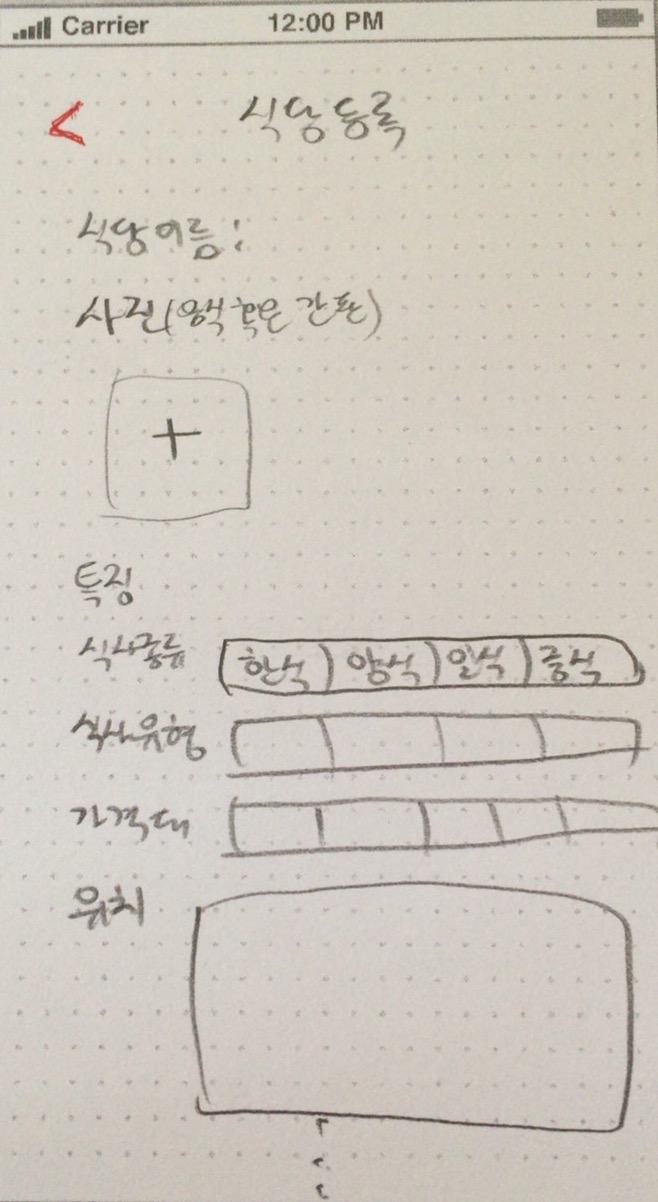 Carrier 12:00 PM
< 식당등록
식당이름:
사진(음식 혹은 간판)
+
특징
식사종류 한식 양식 일식 중식
식사유형
가격대
위치